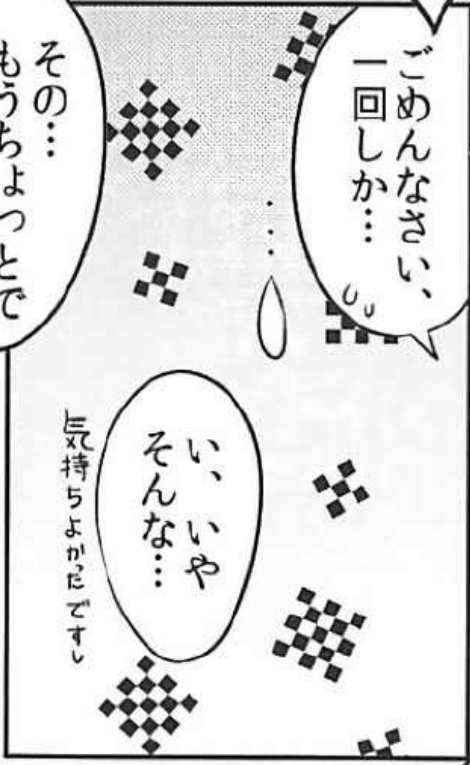 ごめんなさい、
一回しか…
…
い、いや
そんな…
気持ちよかったですし
その…
もうちょっとで